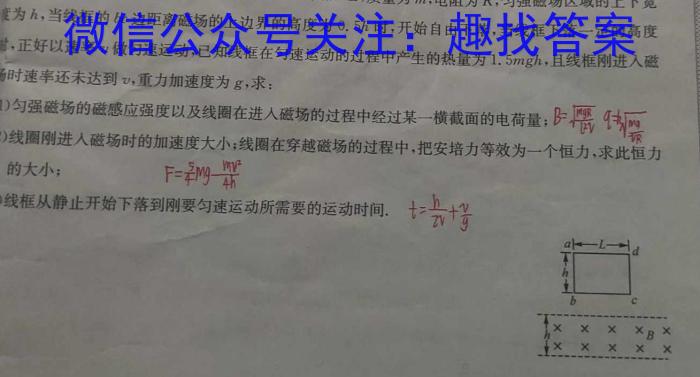 微信公众号关注：趣找答案
度为h，当线框的bc边距离磁场的上边界的高度为0.5h时，开始自由
，正好以速率v做匀速运动，已知线框在匀速运动的过程中产生的热量为1.5mgh，且线框刚进入磁
场时速率还未达到v，重力加速度为g，求：
1)匀强磁场的磁感应强度以及线圈在进入磁场的过程中经过某一横截面的电荷量；
)线圈刚进入磁场时的加速度大小；线圈在穿越磁场的过程中，把安培力等效为一个恒力，求此恒力
的大小； F=5/4mg-mv²/4h
)线框从静止开始下落到刚要匀速运动所需要的运动时间. t=h/2v+v/g
a L d
h
b c
h × × × × B ×
× × × × ×